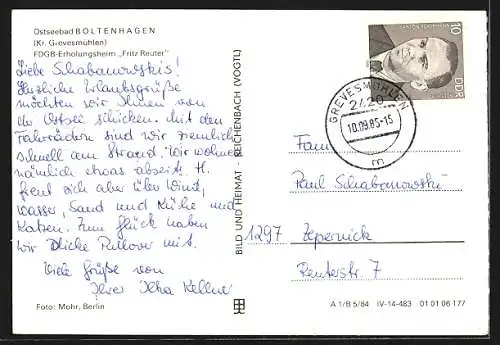 Ostseebad BOLTENHAGEN
(Kr. Grevesmühlen)
FDGB-Erholungsheim „Fritz Reuter"
Liebe Schabanowskis!
Herzliche Urlaubsgrüße
möchten wir Ihnen von
der Ostsee schicken. Mit den
Fahrrädern sind wir ziemlich
schnell am Strand. Wir wohnen
nämlich etwas abseits. H.
freut sich aber über Wind,
Wasser, Sand und Kühe und
Katzen. Zum Glück haben
wir dicke Pullover mit.
Viele Grüße von
Ihrer Ilka Kellner
Foto: Mohr, Berlin
BILD UND HEIMAT · REICHENBACH (VOGTL)
10
DDR
GREVESMÜHLEN
2420
10.09.85-15
m
Fam
Paul Schabanowski
1297 Zepernick
Reuterstr. 7
A 1/B 5/84 IV-14-483 01 01 06 177